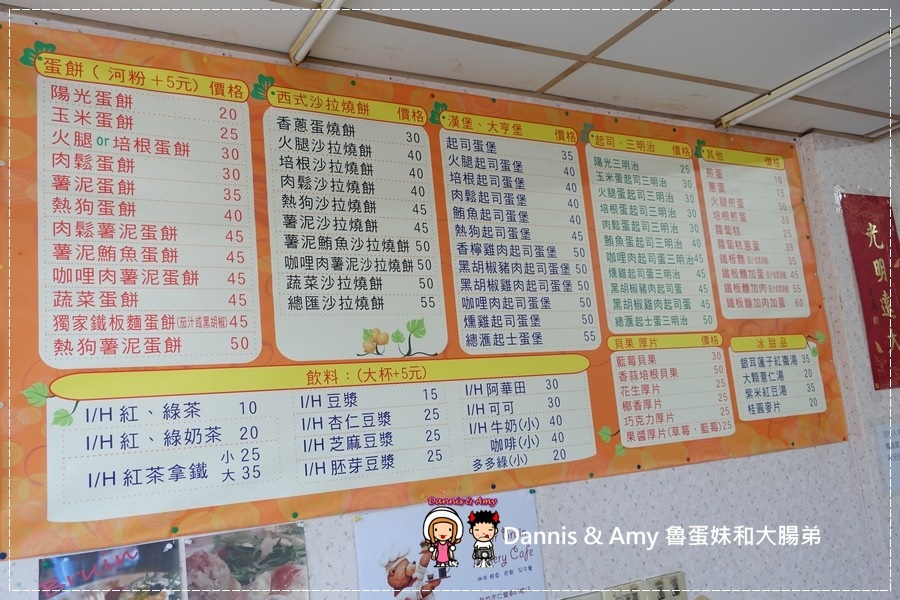 蛋餅(河粉+5元) 價格
陽光蛋餅 20
玉米蛋餅 25
火腿or培根蛋餅 30
肉鬆蛋餅 30
薯泥蛋餅 35
熱狗蛋餅 40
肉鬆薯泥蛋餅 45
薯泥鮪魚蛋餅 45
咖哩肉薯泥蛋餅 45
蔬菜蛋餅 45
獨家鐵板麵蛋餅(茄汁或黑胡椒) 45
熱狗薯泥蛋餅 50
西式沙拉燒餅 價格
香蔥蛋燒餅 30
火腿沙拉燒餅 40
培根沙拉燒餅 40
肉鬆沙拉燒餅 40
熱狗沙拉燒餅 45
薯泥沙拉燒餅 45
薯泥鮪魚沙拉燒餅 50
咖哩肉薯泥沙拉燒餅 50
蔬菜沙拉燒餅 50
總匯沙拉燒餅 55
漢堡、大亨堡 價格
起司蛋堡 35
火腿起司蛋堡 40
培根起司蛋堡 40
肉鬆起司蛋堡 40
鮪魚起司蛋堡 40
熱狗起司蛋堡 45
香檸雞肉起司蛋堡 50
黑胡椒豬肉起司蛋堡 50
黑胡椒雞肉起司蛋堡 50
咖哩肉起司蛋堡 50
燻雞起司蛋堡 50
總滙起士蛋堡 50
起司、三明治 價格
陽光三明治 25
玉米蛋起司三明治 30
火腿蛋起司三明治 30
培根蛋起司三明治 30
肉鬆蛋起司三明治 30
鮪魚蛋起司三明治 40
咖哩肉起司蛋三明治 45
燻雞起司蛋三明治 45
黑胡椒豬肉起司蛋 45
黑胡椒雞肉起司蛋 45
總滙起士蛋三明治 50
其他 價格
煎蛋 10
蔥蛋 15
火腿煎蛋
培根煎蛋 30
蘿蔔糕 25
蘿蔔糕蔥蛋 35
鐵板麵
鐵板麵加蛋 45
鐵板麵加肉 55
鐵板麵加肉加蛋 60
貝果 厚片 價格
藍莓貝果 30
香蒜培根貝果 50
花生厚片 25
椰香厚片 25
巧克力厚片 25
果醬厚片(草莓、藍莓) 25
冰甜品
銀耳蓮子紅棗湯 35
大顆薏仁湯 20
紫米紅豆湯 35
桂圓麥片 20
飲料:(大杯+5元)
I/H 紅、綠茶 10
I/H 紅、綠奶茶 20
I/H 紅茶拿鐵 小 25 大 35
I/H 豆漿 15
I/H 杏仁豆漿 25
I/H 芝麻豆漿 25
I/H 胚芽豆漿 25
I/H 阿華田 30
I/H 可可 30
I/H 牛奶(小) 40
咖啡(小) 40
多多綠(小) 20
光明遠大
Dannis & Amy
Dannis & Amy 魯蛋妹和大腸弟